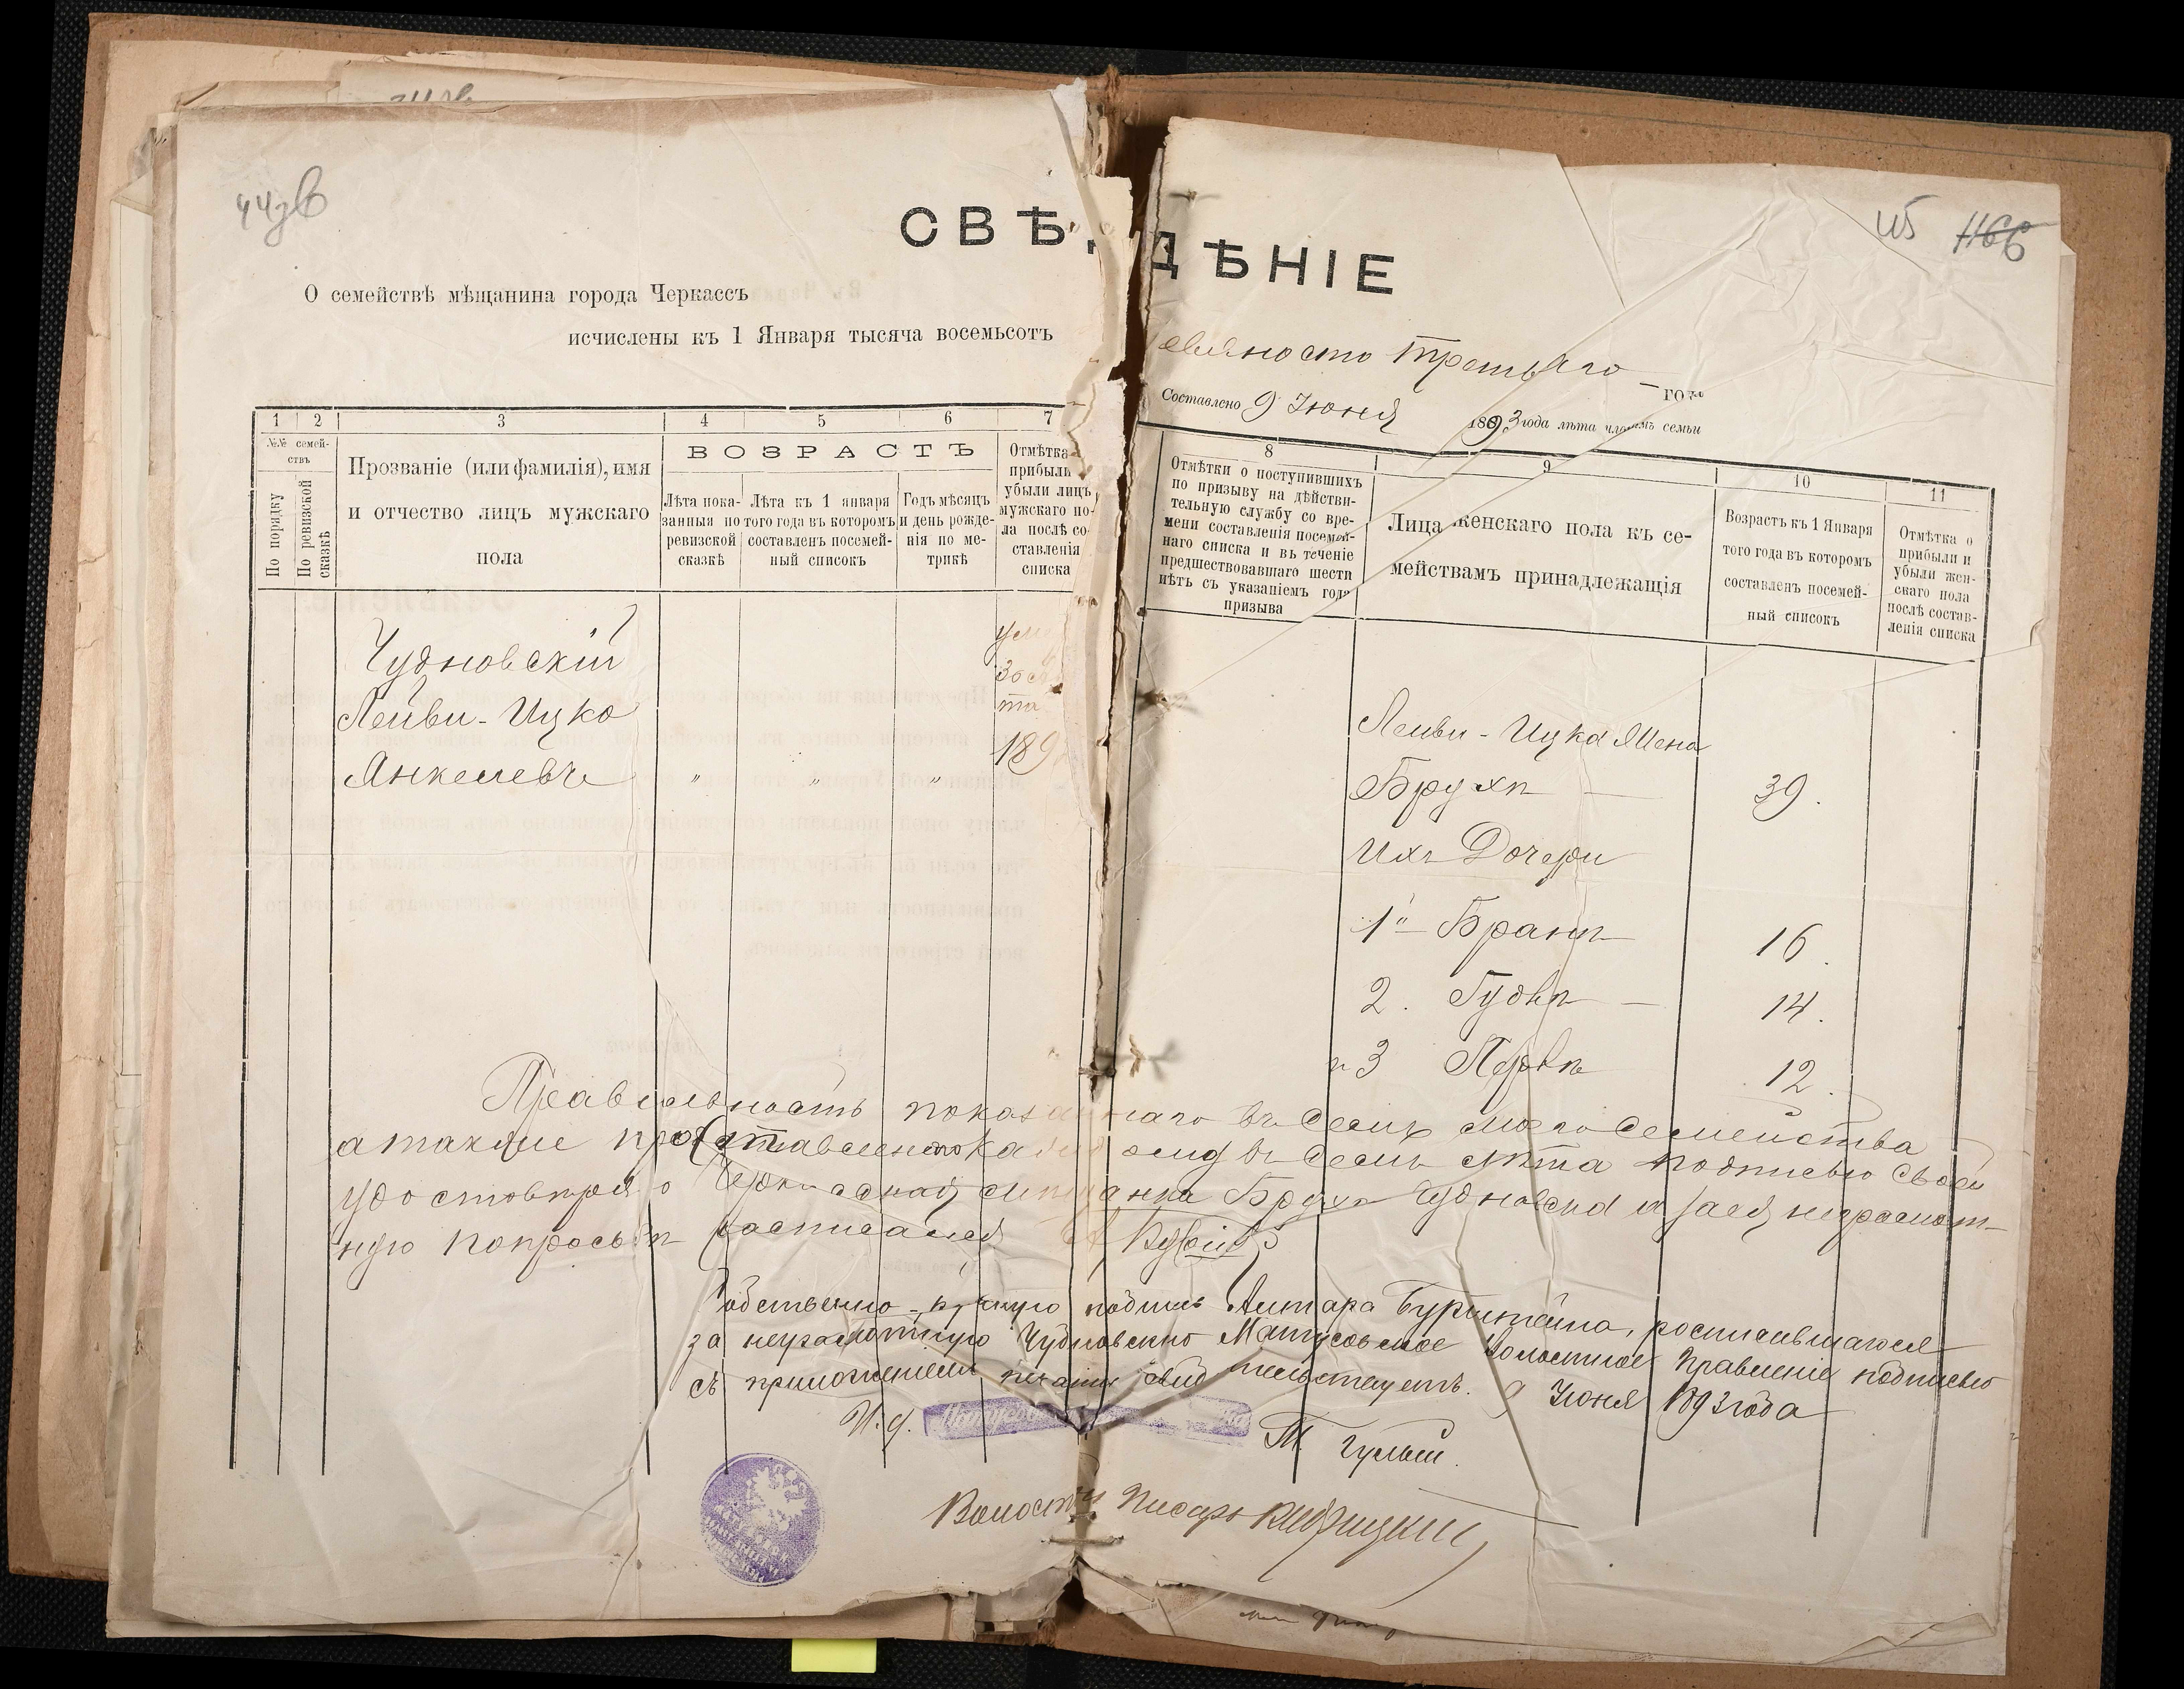 115 1166
СВѢДѢНІЕ
О семействѣ мѣщанина города Черкассъ
исчислены къ 1 Января тысяча восемьсотъ
девяносто третьяго года
Составлено 9 Июня 1893 года лѣта членамъ семьи
1 2 3 4 5 6 7
№№ семей-
ствъ
По порядку
По ревизской
сказкѣ
Прозваніе (или фамилія), имя
и отчество лицъ мужскаго
пола
ВОЗРАСТЪ
Лѣта пока-
занныя по
ревизской
сказкѣ
Лѣта къ 1 января
того года въ которомъ
составленъ посемей-
ный списокъ
Годъ мѣсяцъ
и день рожде-
нія по ме-
трикѣ
Отмѣтка
прибыли
убыли лицъ
мужскаго по-
ла послѣ со-
ставленія
списка
8 9 10 11
Отмѣтки о поступившихъ
по призыву на дѣйстви-
тельную службу со вре-
мени составленія посемей-
наго списка и въ теченіе
предшествовавшаго шести
лѣтъ съ указаніемъ года
призыва
Лица женскаго пола къ се-
мействамъ принадлежащія
Возрастъ къ 1 Января
того года въ которомъ
составленъ посемей-
ный списокъ
Отмѣтка о
прибыли и
убыли жен-
скаго пола
послѣ состав-
ленія списка
Чудновскій
Лейви-Ицко
Янкелевъ " " "
189
Лейви-Ицка Жена
Бруха — 39.
Ихъ Дочери
1я Брана 16.
2. Гудля — 14.
и 3 Перля 12.
Правильность показаннаго въ семъ моего семейства
а также подписью своей
удостовѣряю Черкасская мѣщанка Бруха Чудновска а за ея неграмот-
ную по просьбѣ росписался
Собственно-ручную подпись Бурштейна, росписавшагося
за неграмотную Чудновскую Матусовское Волостное Правленіе подписью
съ приложеніемъ печати свидѣтельствуетъ. 9 Июня 1893 года
И. д.
Волостн Писарь